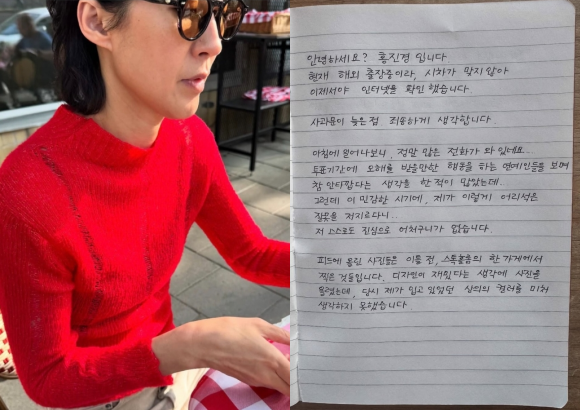 안녕하세요? 홍진경 입니다
현재 해외 출장중이라, 시차가 맞지않아
이제서야 인터넷을 확인 했습니다.
사과문이 늦은점 죄송하게 생각합니다..
아침에 일어나보니, 정말 많은 전화가 와 있네요..
투표기간에 오해를 받을만한 행동을 하는 연예인들을 보며
참 안타깝다는 생각을 한 적이 많았는데..
그런데 이 민감한 시기에, 제가 이렇게 어리석은
잘못을 저지르다니..
저 스스로도 진심으로 어처구니가 없습니다.
피드에 올린 사진들은 이틀 전, 스톡홀름의 한 가게에서
찍은 것들입니다. 디자인이 재밌다는 생각에 사진을
올렸는데, 당시 제가 입고 있었던 상의의 컬러를 미처
생각하지 못했습니다.